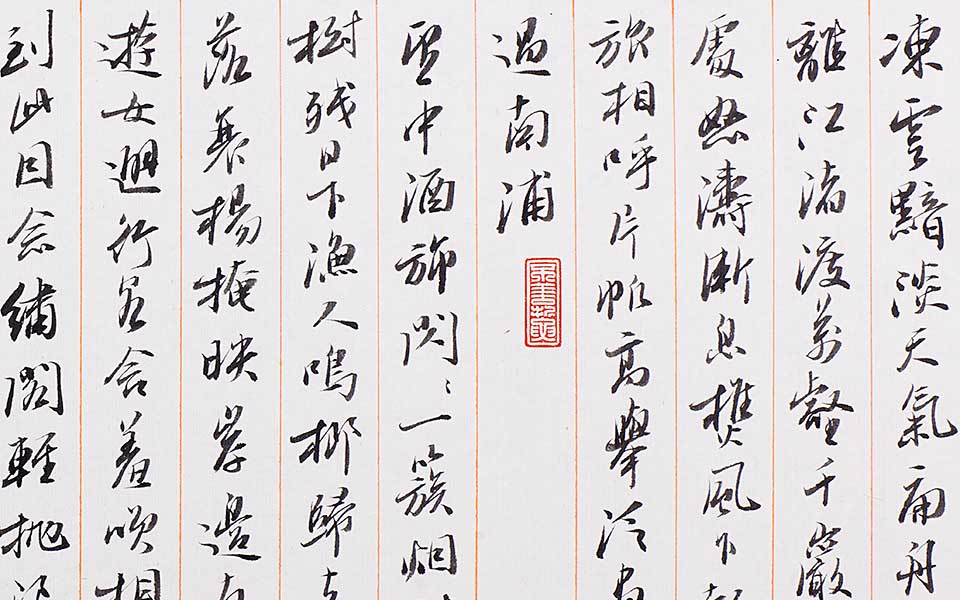 凍雲黯淡天氣扁舟
離江渚渡萬壑千巖
處怒濤漸息樵風乍
旅相呼片帆高舉泛
過南浦
望中酒旆閃閃一簇烟
樹残日下漁人鳴榔歸
落衰楊掩映岸邊
遊女避行客含羞笑相
到此因念繡閣輕拋